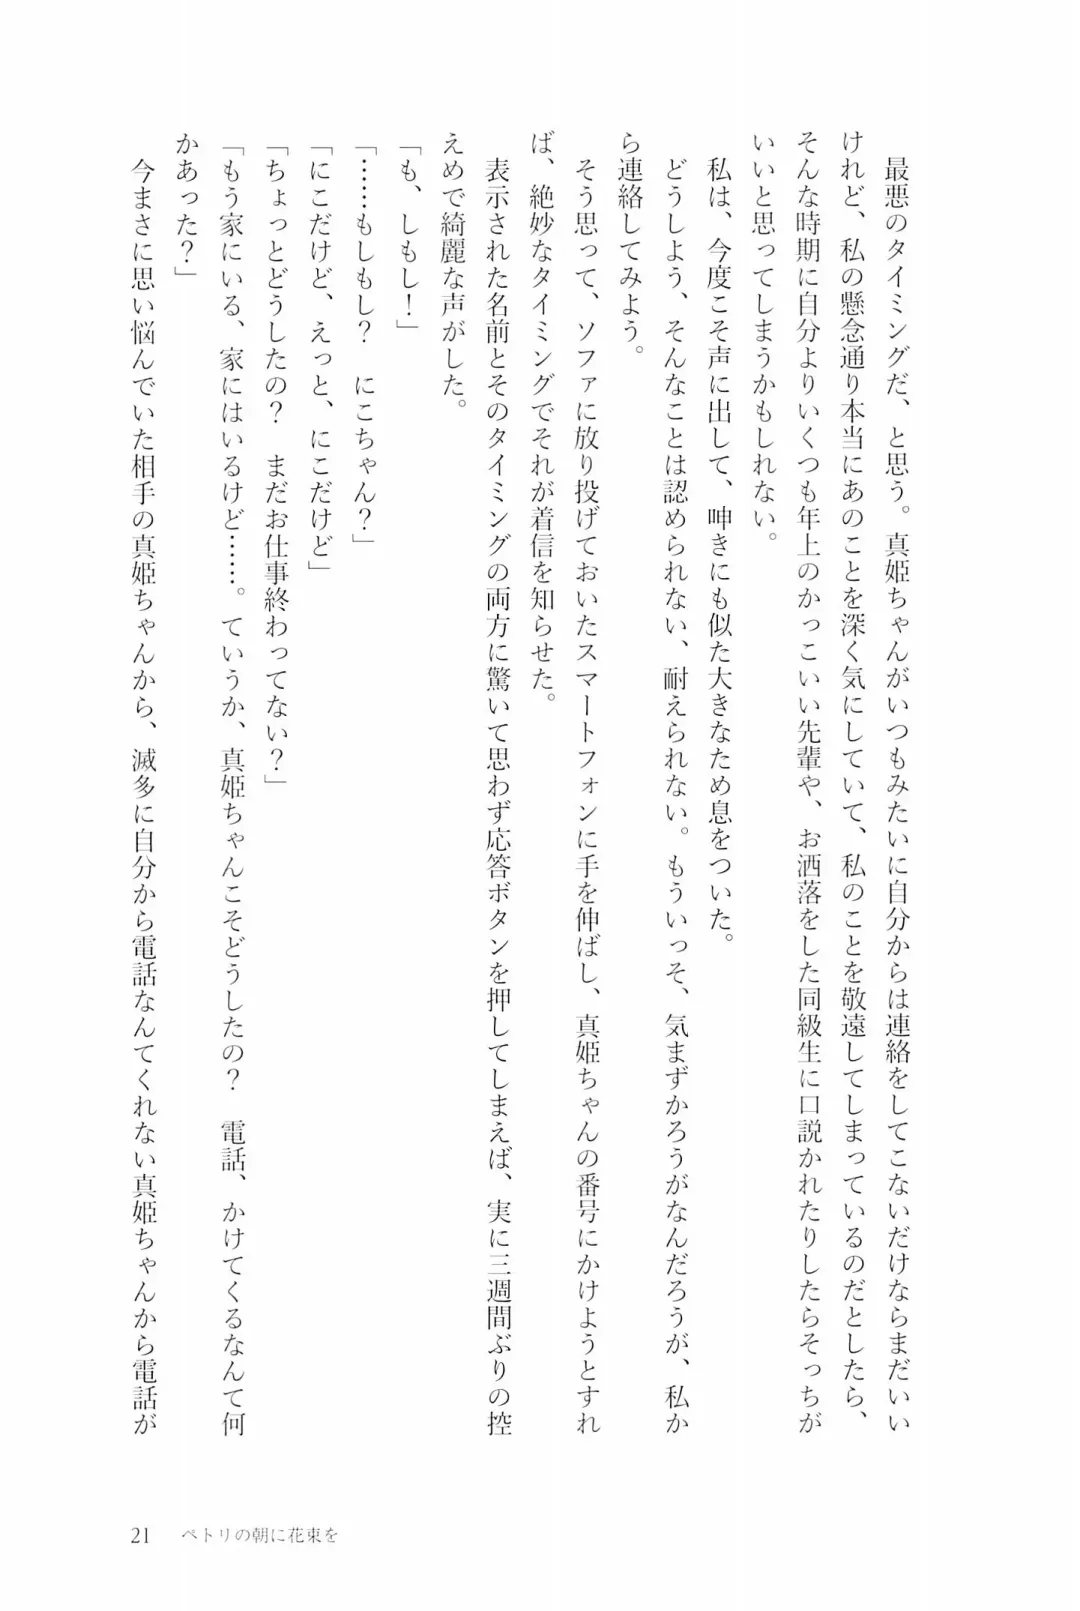 最悪のタイミングだ、と思う。真姫ちゃんがいつもみたいに自分からは連絡をしてこないだけならまだいい
けれど、私の懸念通り本当にあのことを深く気にしていて、私のことを敬遠してしまっているのだとしたら、
そんな時期に自分よりいくつも年上のかっこいい先輩や、お洒落をした同級生に口説かれたりしたらそっちが
いいと思ってしまうかもしれない。
　私は、今度こそ声に出して、呻きにも似た大きなため息をついた。
　どうしよう、そんなことは認められない、耐えられない。もういっそ、気まずかろうがなんだろうが、私か
ら連絡してみよう。
　そう思って、ソファに放り投げておいたスマートフォンに手を伸ばし、真姫ちゃんの番号にかけようとすれ
ば、絶妙なタイミングでそれが着信を知らせた。
　表示された名前とそのタイミングの両方に驚いて思わず応答ボタンを押してしまえば、実に三週間ぶりの控
えめで綺麗な声がした。
「も、しもし！」
「……もしもし？　にこちゃん？」
「にこだけど、えっと、にこだけど」
「ちょっとどうしたの？　まだお仕事終わってない？」
「もう家にいる、家にはいるけど……。ていうか、真姫ちゃんこそどうしたの？　電話、かけてくるなんて何
かあった？」
　今まさに思い悩んでいた相手の真姫ちゃんから、滅多に自分から電話なんてくれない真姫ちゃんから電話が
21　ペトリの朝に花束を